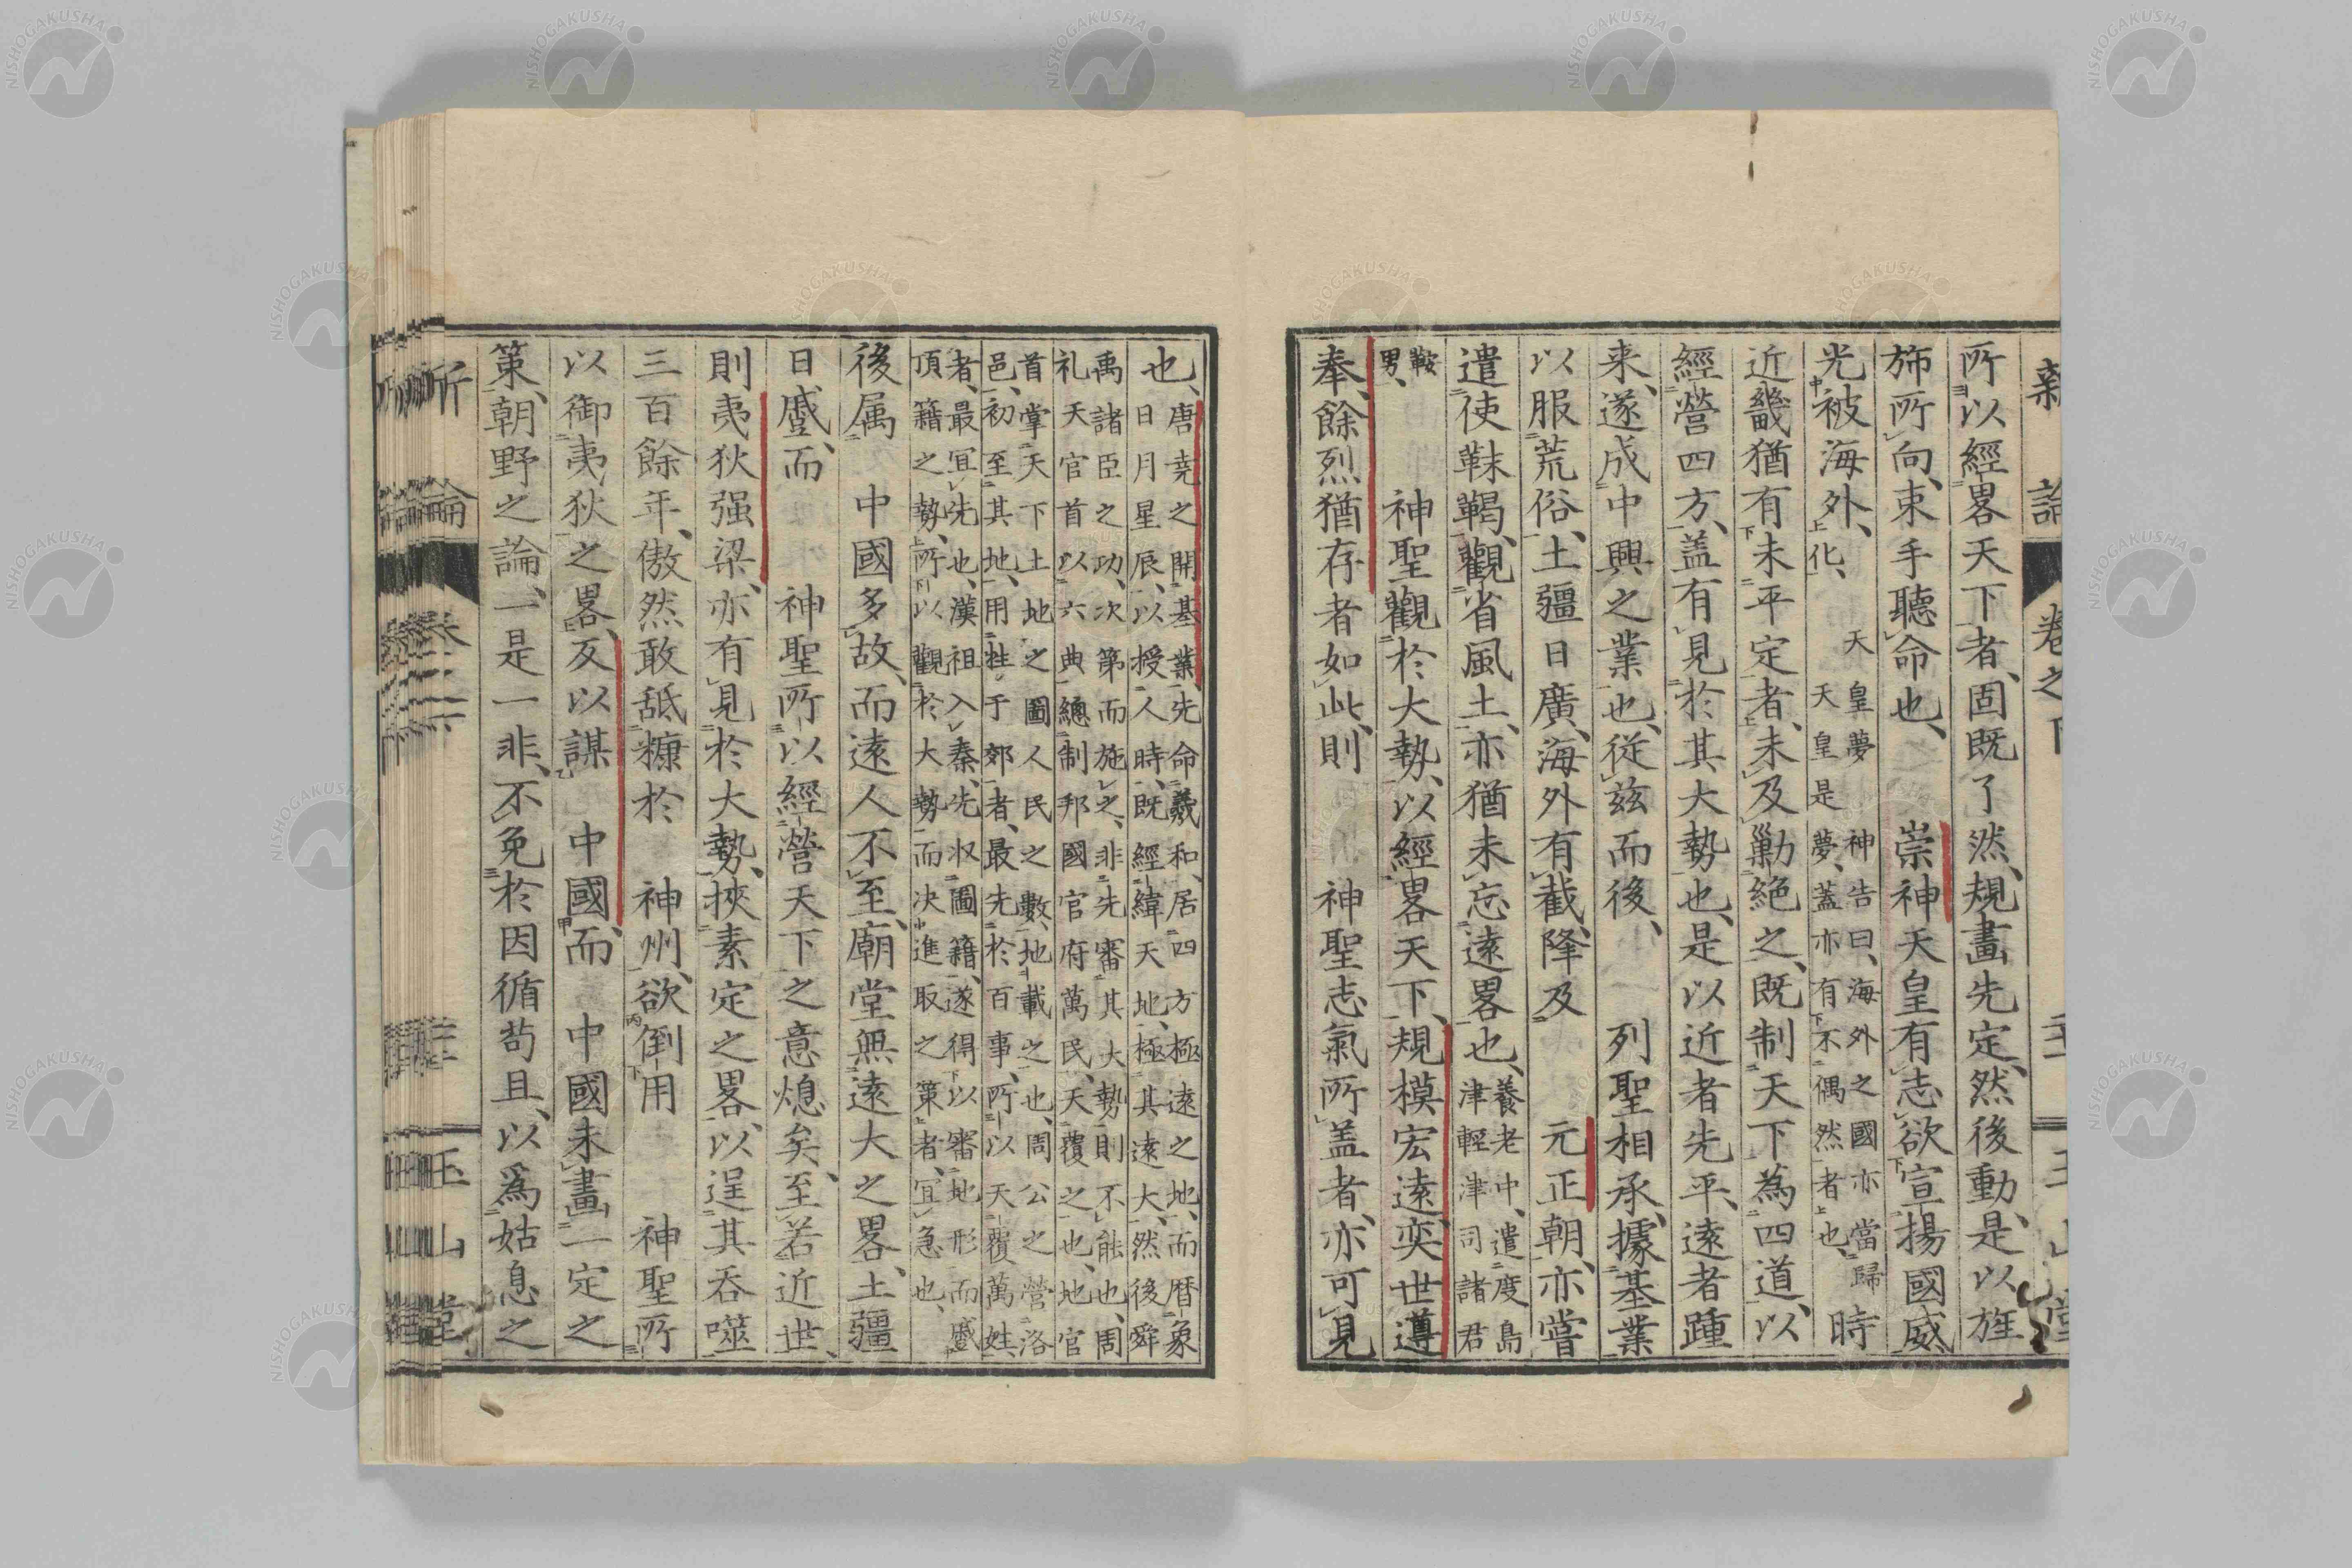 新論 卷之下
所以經畧天下者、固既了然、規畫先定、然後動、是以旌
旆所向、束手聽命也、 崇神天皇有志欲宣揚國威、
光被海外、化、 天皇夢 神告曰、海外之國亦當歸
天皇是夢、蓋亦有不偶然者也、 時
近畿猶有未平定者、未及勦絶之、既制天下為四道、以
經營四方、蓋有見於其大勢也、是以近者先平、遠者踵
来、遂成中興之業也、從茲而後、 列聖相承、據基業
以服荒俗、土疆日廣、海外有截、降及 元正朝、亦嘗
遣使靺鞨、觀省風土、亦猶未忘遠畧也、養老中、遣度島
津輕津司諸君
鞍
男、 神聖觀於大勢、以經畧天下、規模宏遠、奕世遵
奉、餘烈猶存者如此、則 神聖志氣所蓋者、亦可見
也、唐尭之開基業、先命羲和、居四方極遠之地、而暦象
日月星辰、以授人時、既經緯天地、極其遠大、然後舜
禹諸臣之功、次第而施之、非先審其大勢、則不能也、周
礼天官首以六典總制邦國官府萬民、天覆之也、地官
首掌天下土地之圖人民之數、地載之也、周公之營洛
邑、初至其地、用牲于郊者、最先於百事、所以天覆萬姓
者、最宜先也、漢祖入秦、先收圖籍、遂得以審地形而蹙
頂籍之勢、所以觀於大勢而决進取之策者、宜急也、
後属 中國多故、而遠人不至、廟堂無遠大之畧、土疆
日蹙、而 神聖所以經營天下之意熄矣、至若近世、
則夷狄强梁、亦有見於大勢、挾素定之畧、以逞其呑噬
三百餘年、傲然敢舐糠於 神州、欲倒用 神聖所
以御夷狄之畧、反以謀 中國、而 中國未畫一定之
策、朝野之論、一是一非、不免於因循苟且、以爲姑息之
新論
玉山堂
NISHOGAKUSHA